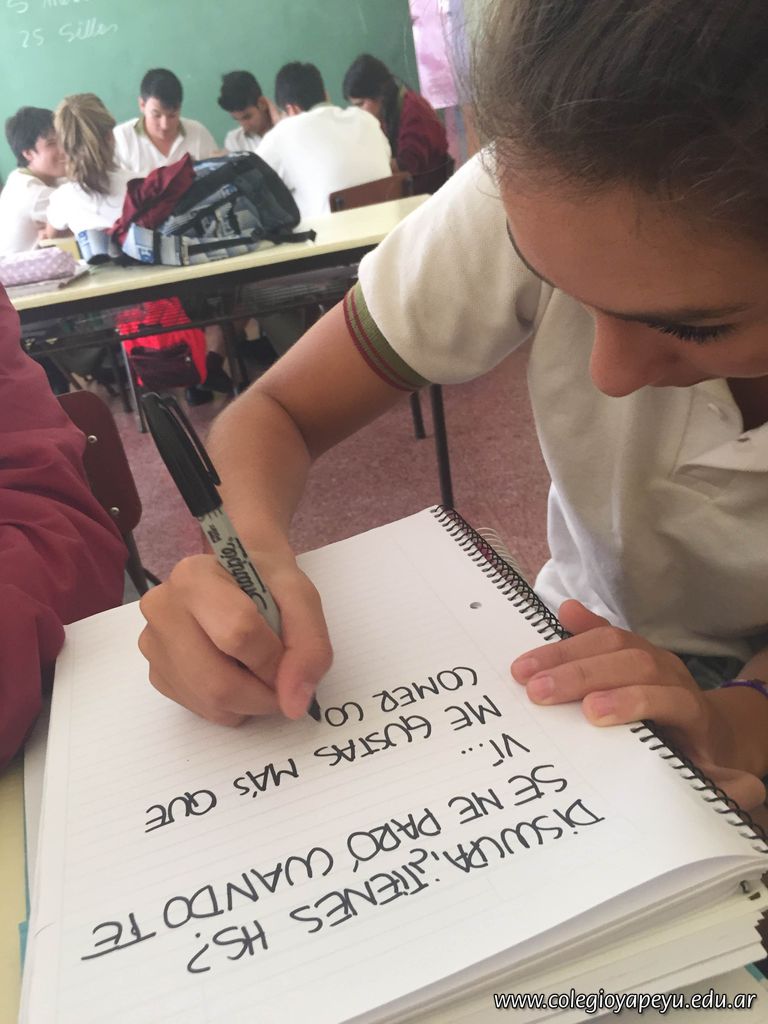 25 Sillas
Sharpie
DISCULPA, ¿TIENES HS?
SE NE PARÓ CUANDO TE
VÍ...
ME GUSTAS MÁS QUE
COMER CO
www.colegioyapeyu.edu.ar